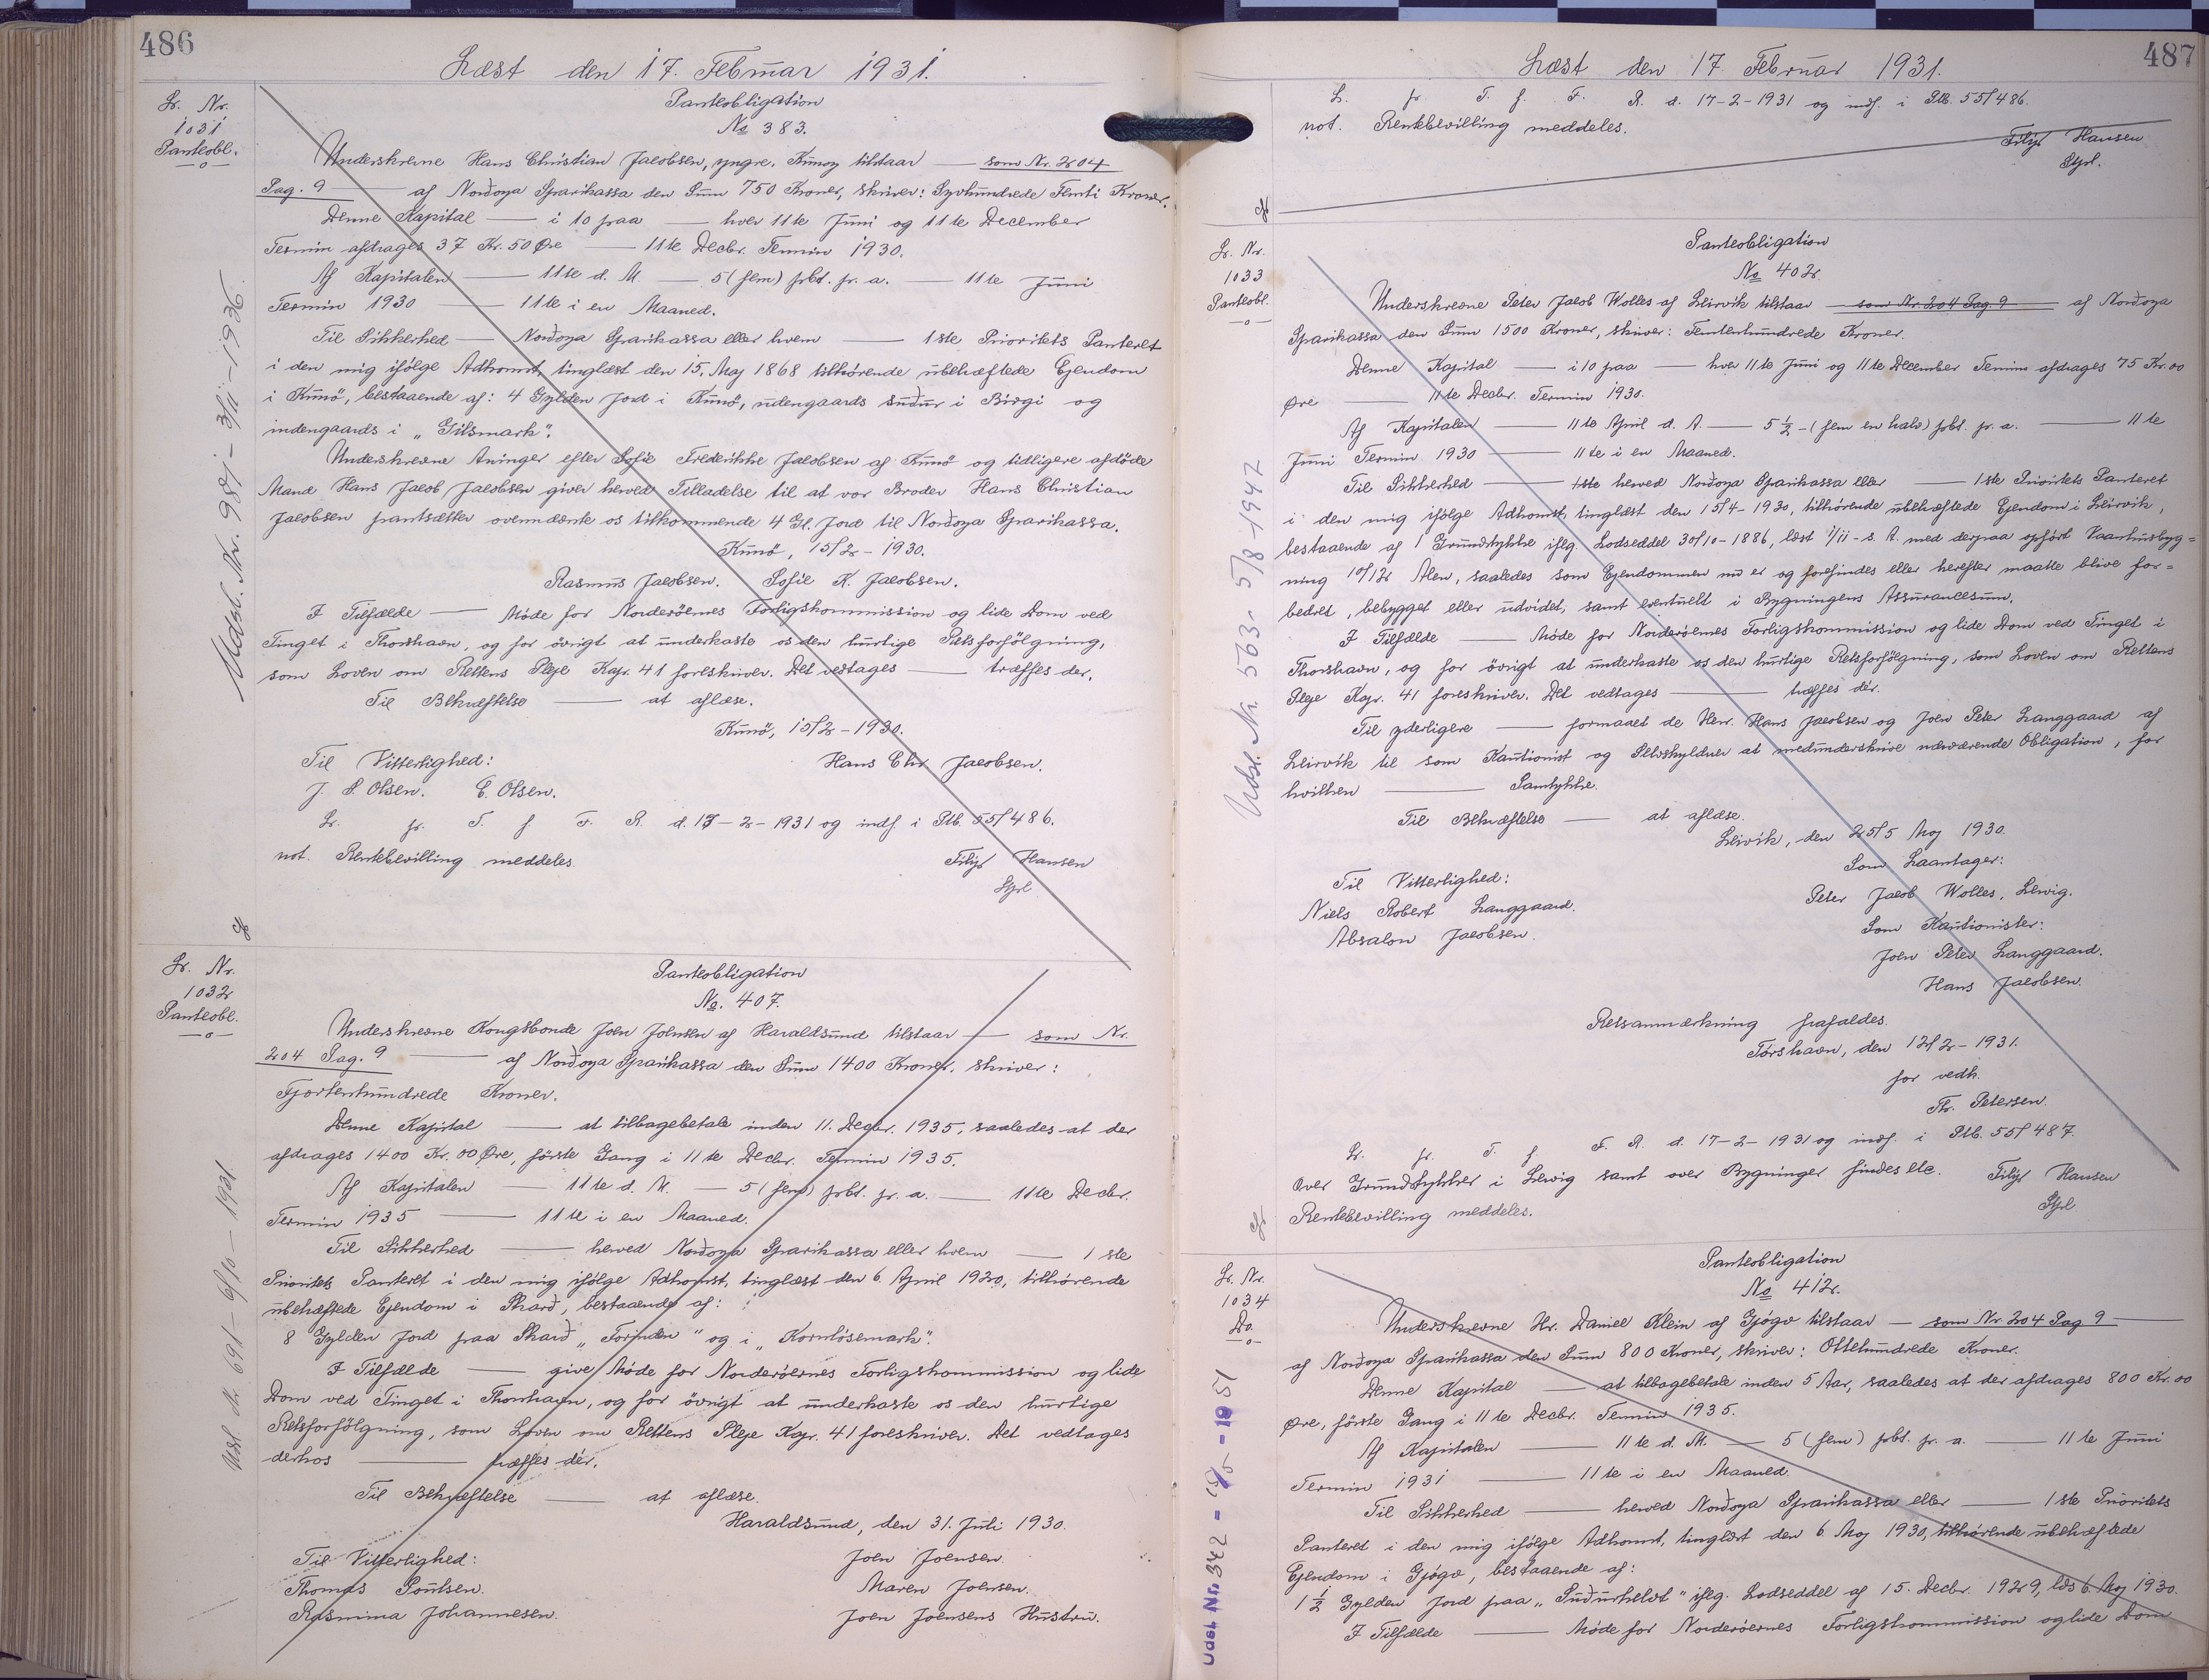 486
Læst den 17. Februar 1931.
Lr. Nr.
1031
Panteobl.
Panteobligation
No 383.
Underskrevne Hans Christian Jacobsen, yngre, Kunoy tilstaar — som Nr. 204
Pag. 9 — af Nordoya Sparikassa den Sum 750 Kroner, skriver: Syvhundrede Femti Kroner.
Denne Kapital — i 10 paa — hver 11te Juni og 11te December
Termin afdrages 37 Kr. 50 Øre — 11te Decbr. Termin 1930.
Af Kapitalen — 11te d. M. — 5 (fem) pCt. p. a. — 11te Juni
Termin 1930 — 11te i en Maaned.
Til Sikkerhed — Nordoya Sparikassa eller hvem — 1ste Prioritets Panteret
i den mig ifølge Adkomst, tinglæst den 15. Maj 1868 tilhørende ubehæftede Ejendom
i Kunö, bestaaende af: 4 Gylden Jord i Kunö, udengaards suður i Birgi og
indengaards i „Gilsmark".
Underskrevne Arvinger efter Sofie Frederikke Jacobsen af Kunö og tidligere afdöde
Mand Hans Jacob Jacobsen giver herved Tilladelse til at vor Broder Hans Christian
Jacobsen pantsætter ovennævnte os tilkommende 4 Gl. Jord til Norðoya Sparikassa.
Kunö, 15/2 - 1930.
Rasmus Jacobsen. Sofie K. Jacobsen.
I Tilfælde — Møde for Norderöernes Forligskommission og lide Dom ved
Tinget i Thorshavn, og for övrigt at underkaste os den hurtige Retsforfölgning,
som Loven om Rettens Pleje Kap. 41 foreskriver. Det vedtages — træffes der.
Til Bekræftelse — at aflæse.
Kunö, 15/2 - 1930.
Til Vitterlighed: Hans Chr Jacobsen.
J. S. Olsen. C. Olsen.
Lr. fr. T. f. F. R. d. 17-2-1931 og indf. i Ptb. 55/486.
not. Rentebevilling meddeles. Filip Hansen
Gpl
Udsl. Nr. 981 - 3/11 - 1936.
Lr. Nr.
1032
Panteobl.
Panteobligation
No. 407.
Underskrevne Kongsbonde Joen Joensen af Haraldsund tilstaar — som Nr.
204 Pag. 9 — af Norðoya Sparikassa den Sum 1400 Kroner, skriver:
Fjortenhundrede Kroner.
Denne Kapital — at tilbagebetale inden 11. Decbr. 1935, saaledes at der
afdrages 1400 Kr. 00 Øre, förste Gang i 11te Decbr. Termin 1935.
Af Kapitalen — 11te d. M. — 5 (fem) pCt. p. a. — 11te Decbr.
Termin 1935 — 11te i en Maaned.
Til Sikkerhed — herved Norðoya Sparikassa eller hvem — 1ste
Prioritets Panteret i den mig ifølge Adkomst, tinglæst den 6. April 1920, tilhørende
ubehæftede Ejendom i Skarð, bestaaende af:
8 Gylden Jord paa Skarð „Forunden" og i „Kornlösemark".
I Tilfælde — give Møde for Norderöernes Forligskommission og lide
Dom ved Tinget i Thorshavn, og for övrigt at underkaste os den hurtige
Retsforfölgning, som Loven om Rettens Pleje Kap. 41 foreskriver. Det vedtages
derhos — træffes dér.
Til Bekræftelse — at aflæse.
Haraldsund, den 31. Juli 1930.
Til Vitterlighed: Joen Joensen.
Thomas Poulsen. Maren Joensen.
Rasmina Johannesen. Joen Joensens Hustru.
Udsl. Nr. 691 - 6/10 - 1931.
487
Læst den 17 Februar 1931.
L. fr. T. f. F. R. d. 17-2-1931 og indf. i Ptb. 55/486.
not. Rentebevilling meddeles.
Filip Hansen
Gpl.
Lr. Nr.
1033
Panteobl.
Panteobligation
No 402
Underskrevne Peter Jacob Wolles af Leirvik tilstaar — som Nr. 204 Pag. 9 — af Norðoya
Sparikassa den Sum 1500 Kroner, skriver: Femtenhundrede Kroner.
Denne Kapital — i 10 paa — hver 11te Juni og 11te December Termin afdrages 75 Kr. 00
Øre — 11te Decbr. Termin 1930.
Af Kapitalen — 11te April d. A. — 5 1/2 - (fem en halv) pCt. p. a. — 11te
Juni Termin 1930 — 11te i en Maaned.
Til Sikkerhed — 1ste herved Norðoya Sparikassa eller — 1ste Prioritets Panteret
i den mig ifølge Adkomst, tinglæst den 15/4 - 1930, tilhørende ubehæftede Ejendom i Leirvik,
bestaaende af 1 Grundstykke iflg. Lodseddel 30/10 - 1886, læst 1/11 - s. A. med derpaa opført Vaanhusbyg=
ning 10/12 Alen, saaledes som Ejendommen nu er og forefindes eller herefter maatte blive for=
bedret, bebygget eller udvidet, samt eventuelt i Bygningens Assurancesum.
I Tilfælde — Møde for Norderöernes Forligskommission og lide Dom ved Tinget i
Thorshavn, og for övrigt at underkaste os den hurtige Retsforfölgning, som Loven om Rettens
Pleje Kap. 41 foreskriver. Det vedtages — træffes dér.
Til yderligere — formaaet de Herr. Hans Jacobsen og Joen Peter Langgaard af
Leirvik til som Kautionist og Selvskyldner at medunderskrive nærværende Obligation, for
hvilken — Samtykke.
Til Bekræftelse — at aflæse.
Leirvik, den 25/5 Maj 1930.
Som Laantager:
Til Vitterlighed: Peter Jacob Wolles, Lervig.
Niels Robert Langgaard. Som Kautionister:
Absalon Jacobsen. Joen Peter Langgaard.
Hans Jacobsen.
Retsanmærkning frafaldes.
Tórshavn, den 12/2 - 1931.
for vedk.
Th. Petersen.
Lr. fr. T. f F. R. d. 17-2-1931 og indf. i Ptb. 55/487.
Over Grundstykker i Lervig samt over Bygninger findes etc. Filip Hansen
Rentebevilling meddeles. Gpl
Udsl. Nr. 563 - 5/8 - 1947
Lr. Nr.
1034
Do.
Panteobligation
No 412.
Underskrevne Hr. Daniel Klein af Gjógv tilstaar — som Nr. 204 Pag 9 —
af Norðoya Sparikassa den Sum 800 Kroner, skriver: Ottehundrede Kroner.
Denne Kapital — at tilbagebetale inden 5 Aar, saaledes at der afdrages 800 Kr. 00
Øre, förste Gang i 11te Decbr. Termin 1935.
Af Kapitalen — 11te d. M. — 5 (fem) pCt. p. a. — 11te Juni
Termin 1931 — 11te i en Maaned.
Til Sikkerhed — herved Norðoya Sparikassa eller — 1ste Prioritets
Panteret i den mig ifølge Adkomst, tinglæst den 6. Maj 1930, tilhørende ubehæftede
Ejendom i Gjógv, bestaaende af:
1 1/2 Gylden Jord paa „Suðurhelvt" iflg. Lodseddel af 15. Decbr. 1929, læs 6. Maj 1930.
I Tilfælde — Møde for Norderöernes Forligskommission og lide Dom